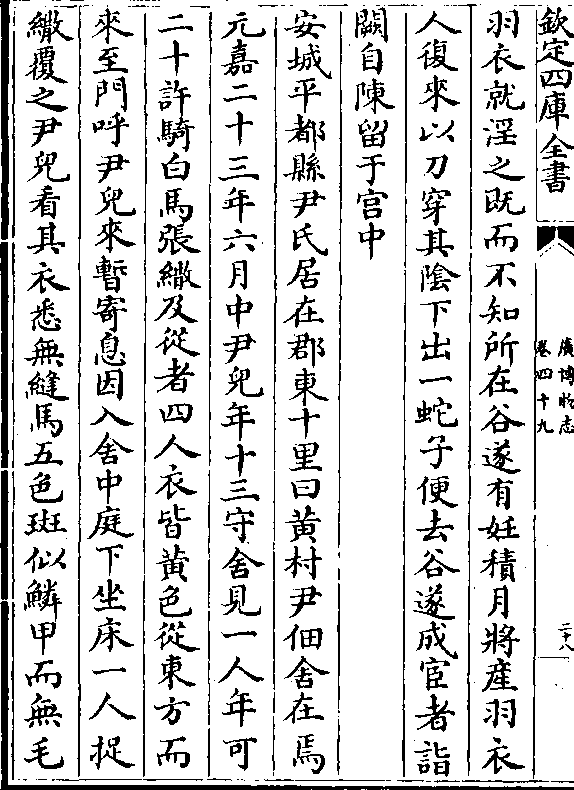 欽定四庫全書
廣博物志
卷四十九
二十八
羽衣就淫之既而不知所在谷遂有妊積月將產羽衣
人復來以刀穿其陰下出一蛇子便去谷遂成宦者詣
闕自陳留于宫中
安城平都縣尹氏居在郡東十里曰黄村尹佃舍在焉
元嘉二十三年六月中尹兒年十三守舍見一人年可
二十許騎白馬張繖及從者四人衣皆黄色從東方而
來至門呼尹兒來暫寄息因入舍中庭下坐床一人捉
繖覆之尹兒看其衣悉無縫馬五色斑似鱗甲而無毛